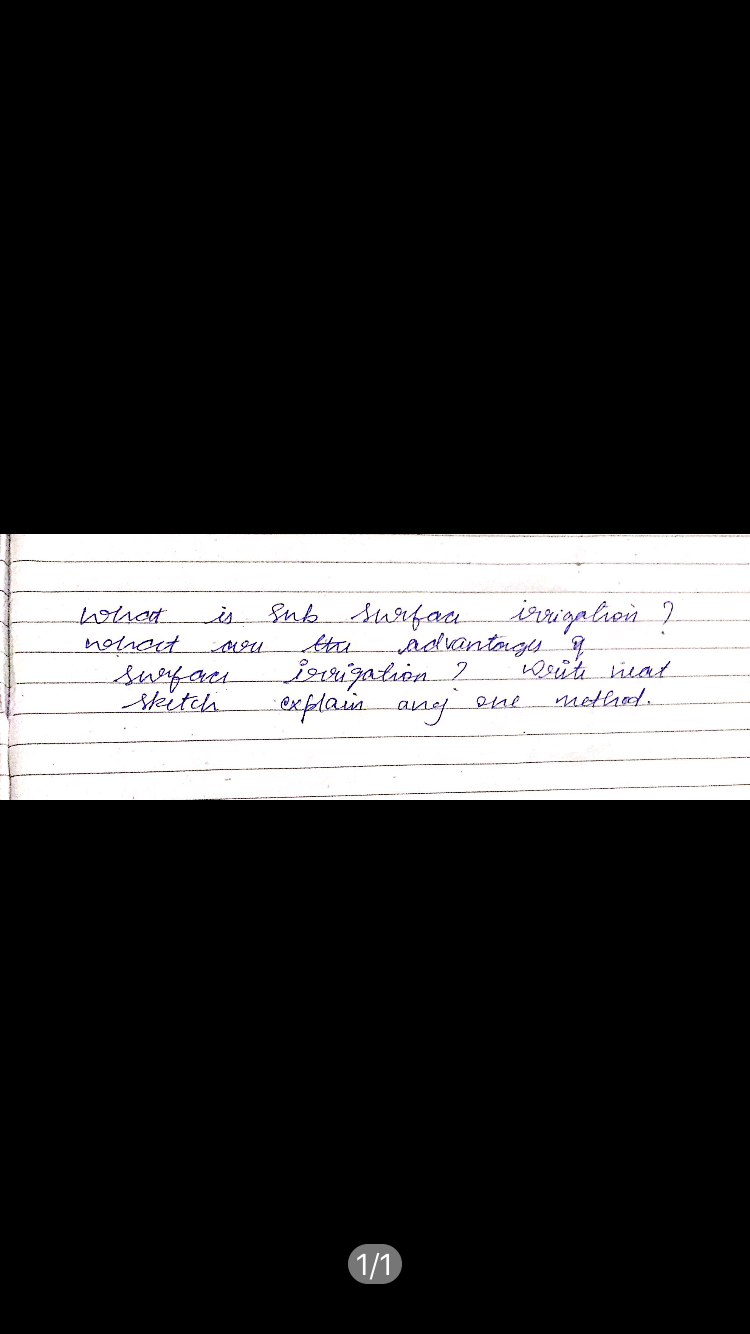 What is Sub surface irrigation?
what are the advantages of
surface irrigation? Write neat
sketch explain any one method.
1/1